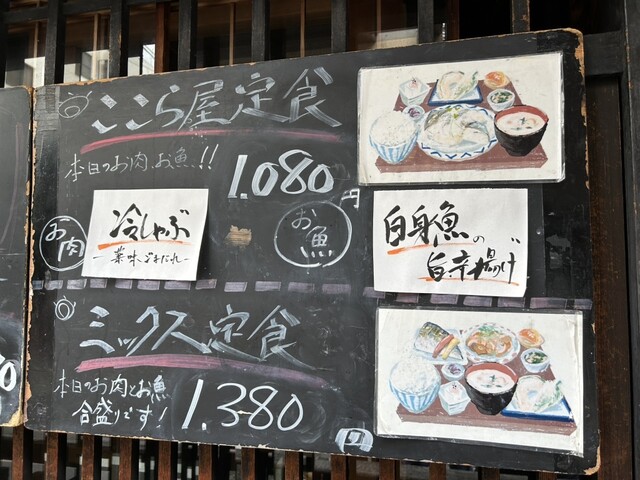 ここら屋定食
本日のお肉、お魚!!
1.080円
お肉
冷しゃぶ
-薬味ごまだれ-
お魚
白身魚の
旨辛揚げ
ミックス定食
本日のお肉とお魚
合盛りです!
1.380
円